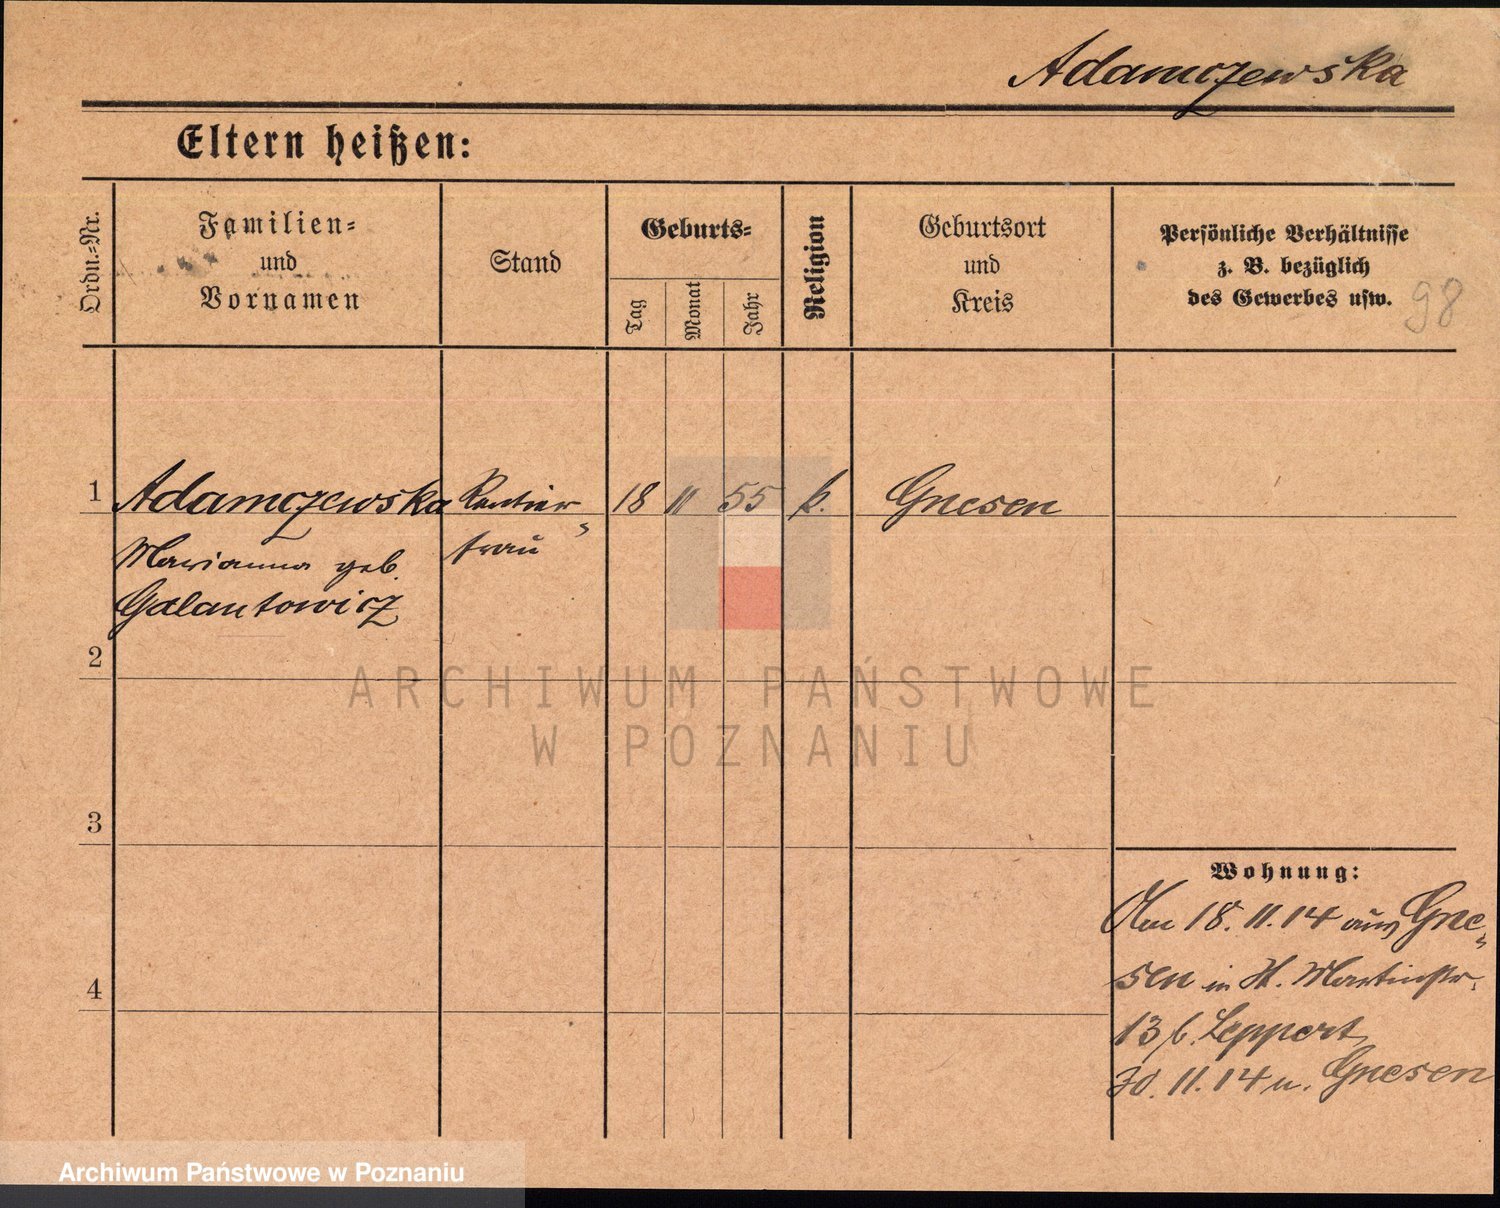 Adamczewska
Eltern heißen:
Ordn.-Nr.
Familien-
und
Vornamen
Stand
Geburts-
Tag
Monat
Jahr
Religion
Geburtsort
und
Kreis
Persönliche Verhältnisse
z. B. bezüglich
des Gewerbes usw.
98
1 Adamczewska Rentier- 18 11 55 k. Gnesen
Marianna geb. frau
Galantowicz
2
ARCHIWUM PAŃSTWOWE
W POZNANIU
3
Wohnung:
Am 18. 11. 14 aus Gne-
sen in St. Martinstr.
4
13 b. Leppert
30. 11. 14 n. Gnesen
Archiwum Państwowe w Poznaniu